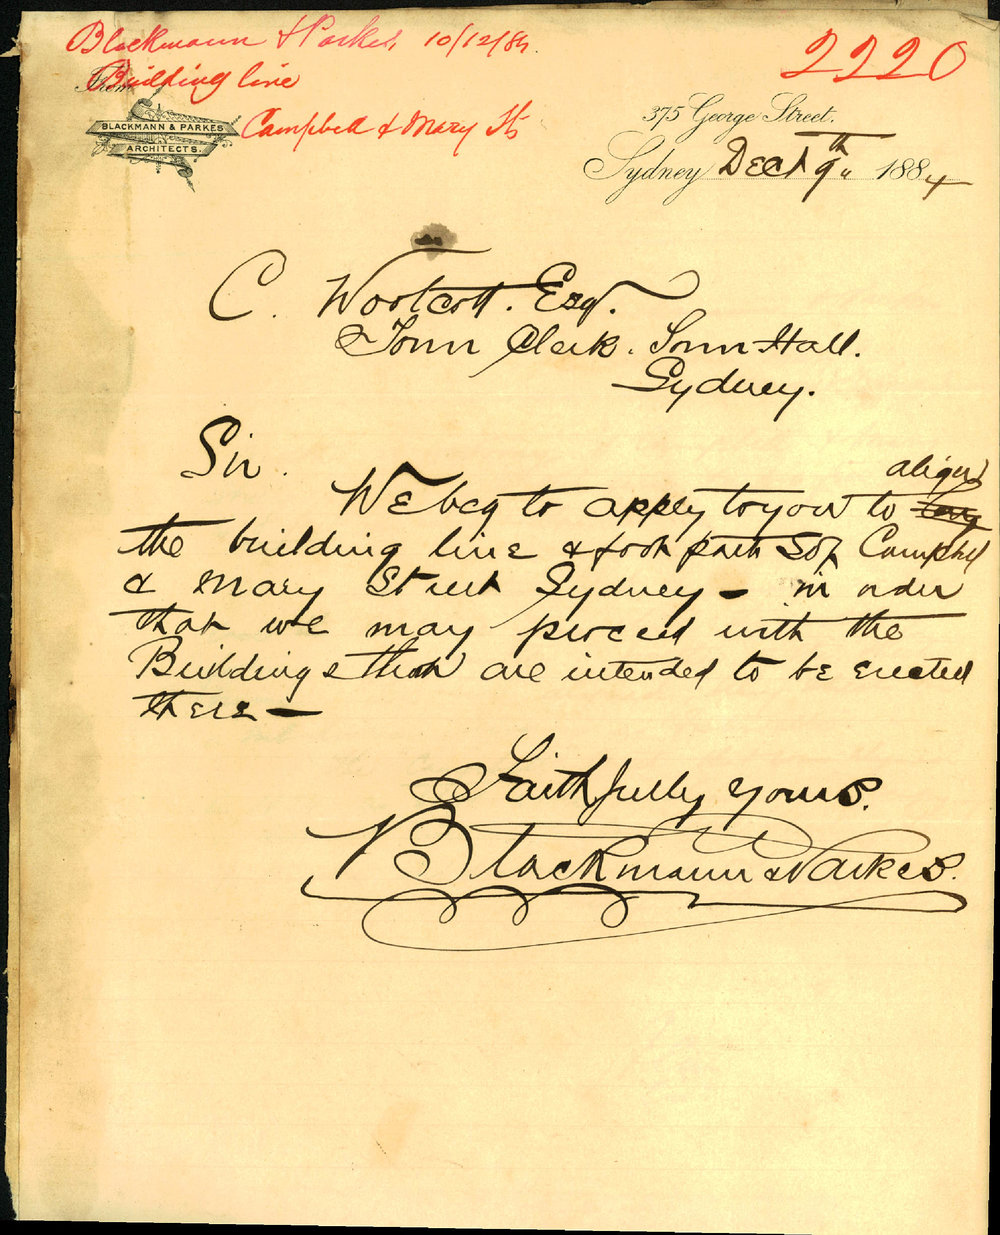 Blackmann & Parkes, 10/12/84.
2220
Building line
From
BLACKMANN & PARKES
ARCHITECTS.
Campbell & Mary Sts
375 George Street.
Sydney Dect 9th 1884
C. Woolcott. Esq.
Town Clerk. Town Hall.
Sydney.
Sir.
We beg to apply to you to align
the building line & foot path Campbell
& Mary Street Sydney - in order
that we may proceed with the
Buildings that are intended to be erected
there -
Faithfully yours.
Blackmann & Parkes.